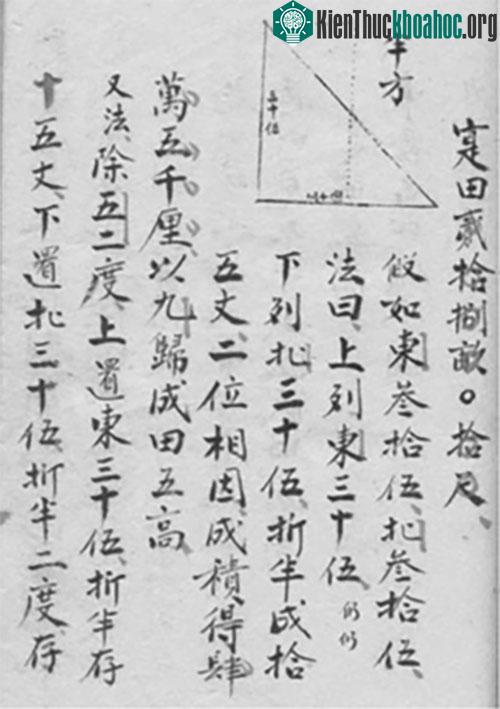 KienThuckhoahoc.org
寔田貳拾捌畝。拾尺
半方
三十伍
假如東叁拾伍、北叁拾伍、
法曰、上列東三十伍 仍仍
下列北三十伍、折半成拾
五丈、二位相因成積、得肆
萬五千厘以九歸成田五高
又法、除五二度、上置東三十伍、折半存
十五丈、下置北三十伍、折半二度、存